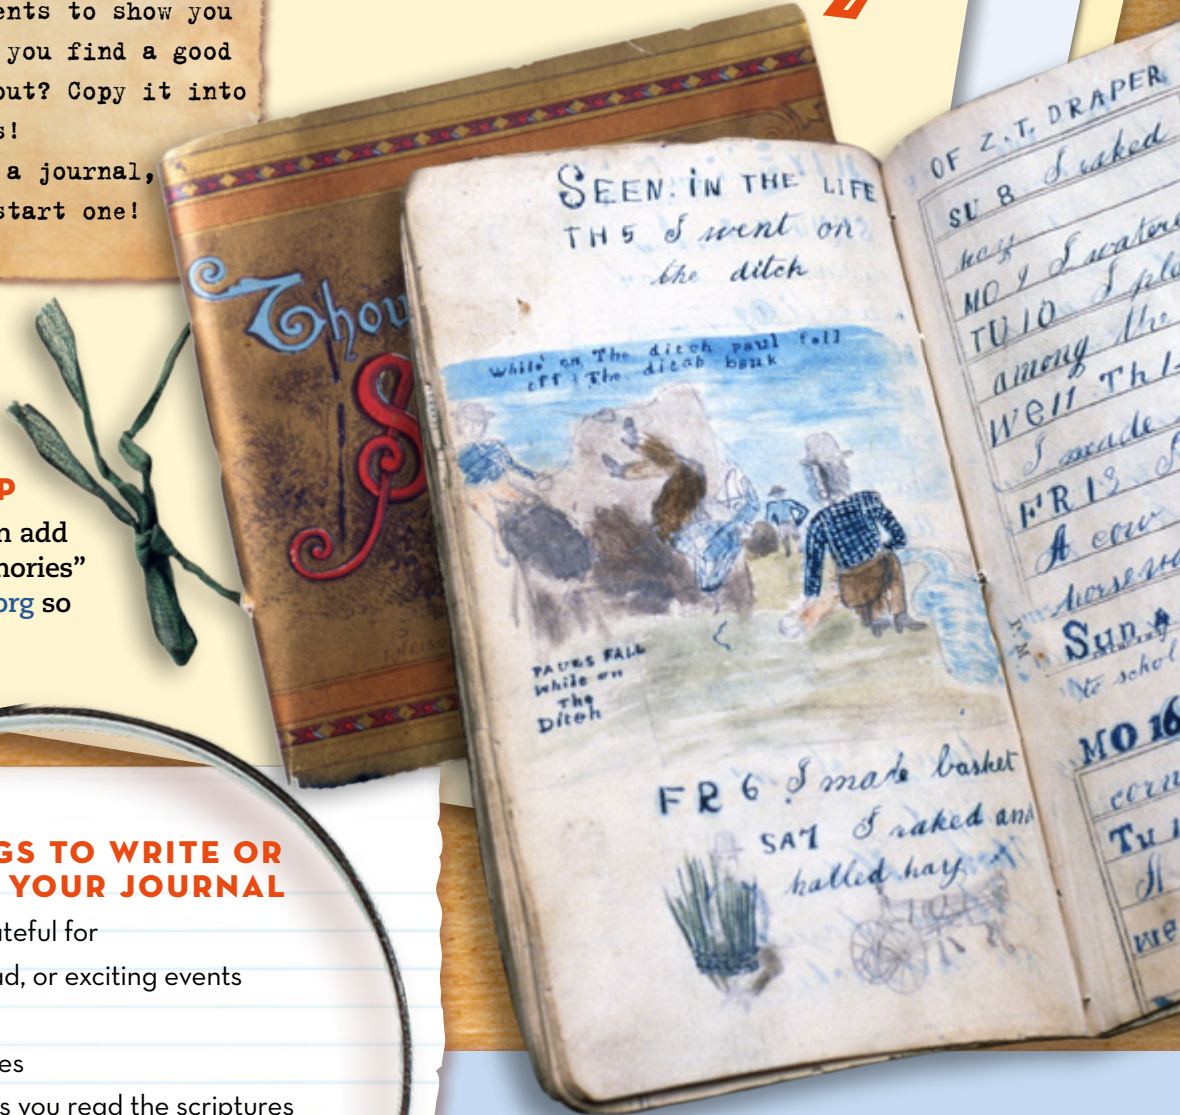 ents to show you
you find a good
out? Copy it into
s!
a journal,
start one!
P
n add
nories"
org so
GS TO WRITE OR
YOUR JOURNAL
ateful for
ad, or exciting events
es
s you read the scriptures
Thou
S
SEEN. iN THE LIFE
TH 5 I went on
the ditch
While on The ditch paul fell
off The ditch bank
PAULS FALL
While on
The
Ditch
FR 6 I made basket
SA7 I raked and
halled hay
OF Z.T. DRAPER
SU 8 I raked
hay
MO 9 I watere
TU 10 I pla
among the
Well Th1
I made
FR 13
A cow
horse
P.M.
Sun
to schol
MO 16
corn
Tu 1
A
we